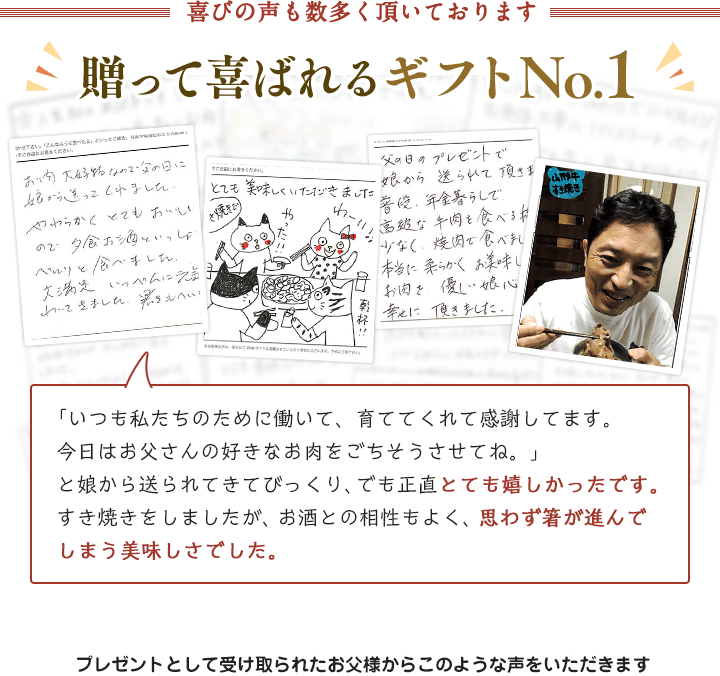 喜びの声も数多く頂いております
贈って喜ばれるギフトNo.1
お肉大好物なので父の日に
娘から送ってくれました。
やわらかくとてもおいしい
ので夕食お酒といっしょに
ペロリと食べました。
大満足
とても美味しくいただきました
すき焼きで
やったー
わーい!!
乾杯!!
父の日のプレゼントで
娘から送られて頂きま
普段、年金暮らしで
高級な牛肉を食べる機
少なく、焼肉で食べまし
本当に柔らかくお美味し
お肉を優しい娘心
幸せに頂きました。
山形牛
すき焼き
「いつも私たちのために働いて、育ててくれて感謝してます。
今日はお父さんの好きなお肉をごちそうさせてね。」
と娘から送られてきてびっくり、でも正直とても嬉しかったです。
すき焼きをしましたが、お酒との相性もよく、思わず箸が進んで
しまう美味しさでした。
プレゼントとして受け取られたお父様からこのような声をいただきます